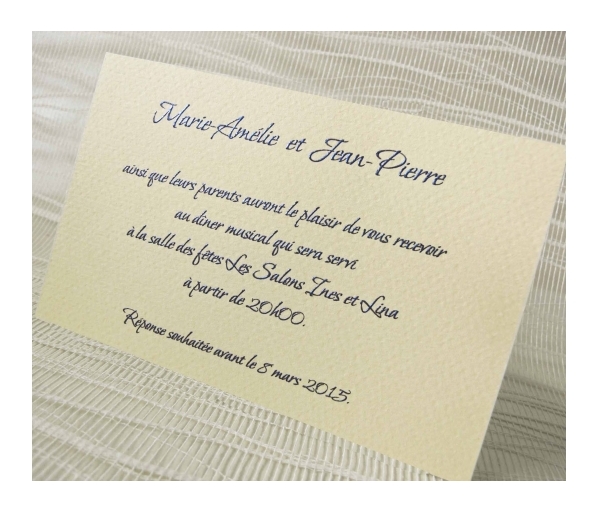 Marie-Amélie et Jean-Pierre
ainsi que leurs parents auront le plaisir de vous recevoir
au dîner musical qui sera servi
à la salle des fêtes Les Salons Ines et Lina
à partir de 20h00.
Réponse souhaitée avant le 8 mars 2015.